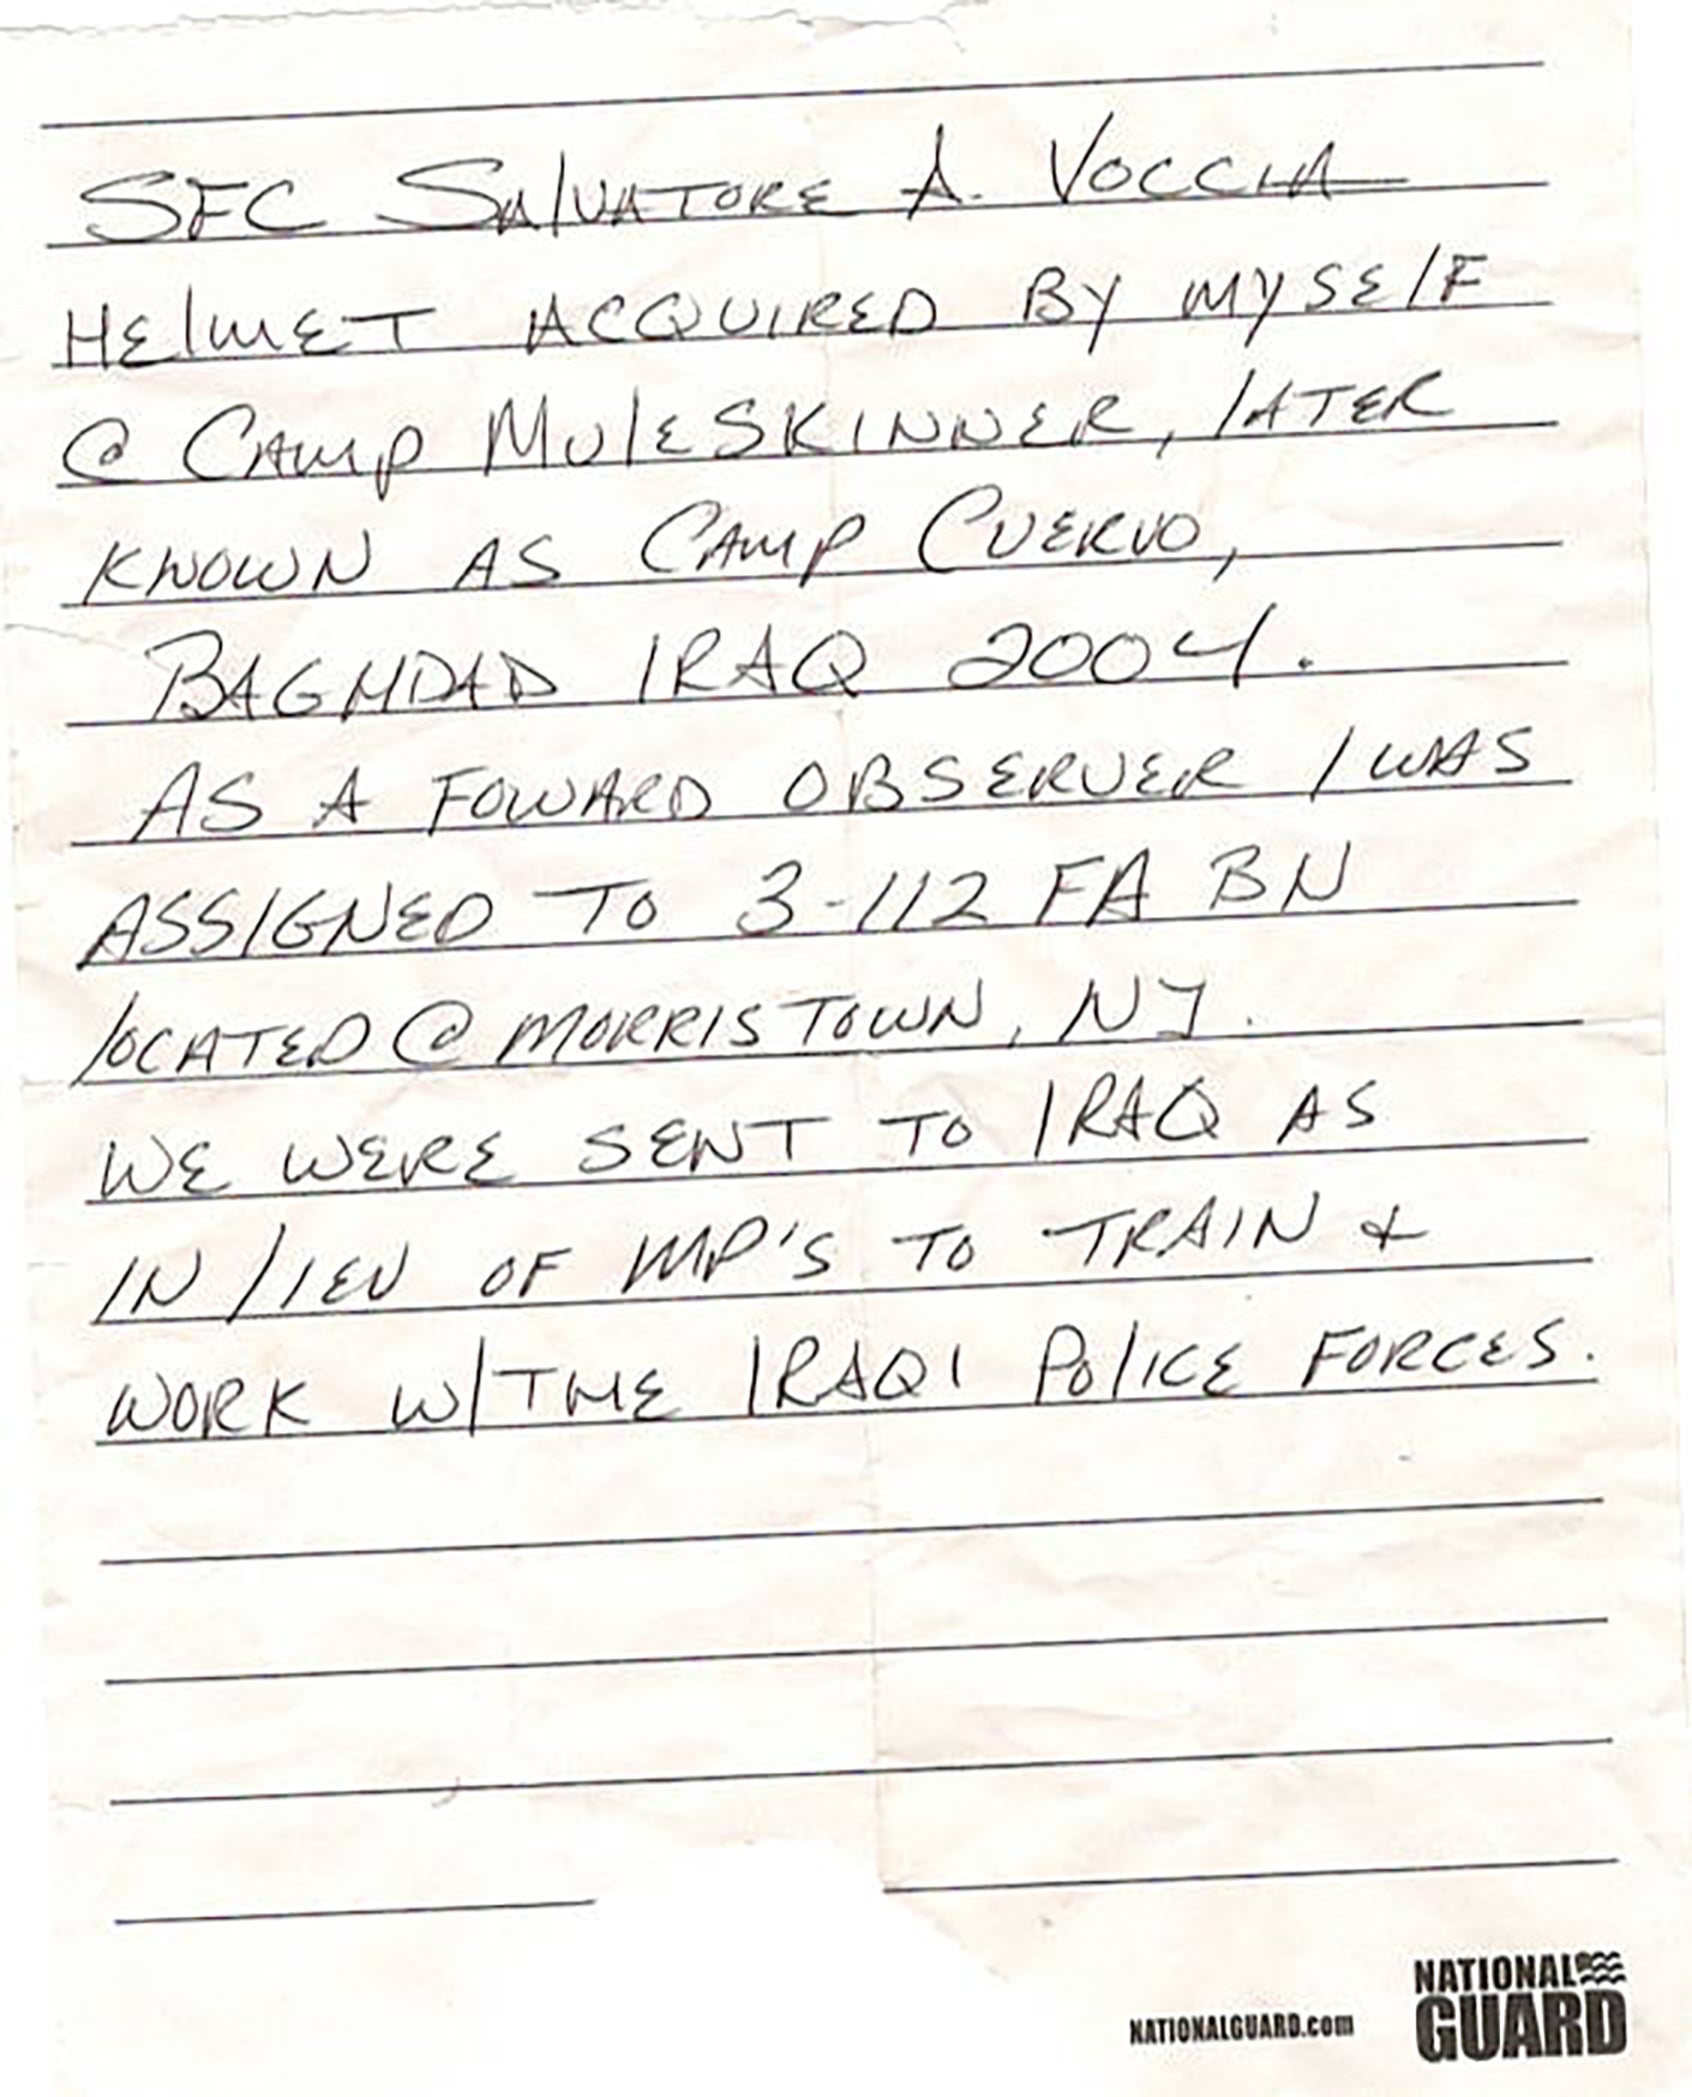 SFC SAlVATORE A. VOCCIA
HElMET ACQUIRED BY MYSElF
@ CAMP MUlESKINNER, lATER
KNOWN AS CAMP CUERVO,
BAGHDAD IRAQ 2004.
AS A FOWARD OBSERVER I WAS
ASSIGNED TO 3-112 FA BN
lOCATED @ MORRISTOWN, NJ.
WE WERE SENT TO IRAQ AS
IN lIEU OF MP'S TO TRAIN &
WORK W/THE IRAQI POlICE FORCES.
NATIONALGUARD.com
NATIONAL
GUARD